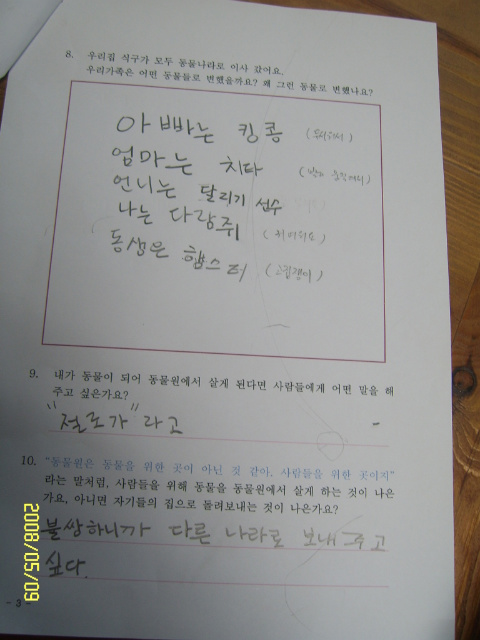 8. 우리집 식구가 모두 동물나라로 이사 갔어요.
우리가족은 어떤 동물들로 변했을까요? 왜 그런 동물로 변했나요?
아빠는 킹콩
엄마는 치타
언니는 달리기 선수
나는 다람쥐 (귀여워요)
동생은 햄스터
9. 내가 동물이 되어 동물원에서 살게 된다면 사람들에게 어떤 말을 해
주고 싶은가요?
"절로가" 라고
10. "동물원은 동물을 위한 곳이 아닌 것 같아. 사람들을 위한 곳이지"
라는 말처럼, 사람들을 위해 동물을 동물원에서 살게 하는 것이 나은
가요, 아니면 자기들의 집으로 돌려보내는 것이 나은가요?
불쌍하니까 다른 나라로 보내 주고
싶다.
- 3 -
2008/05/09